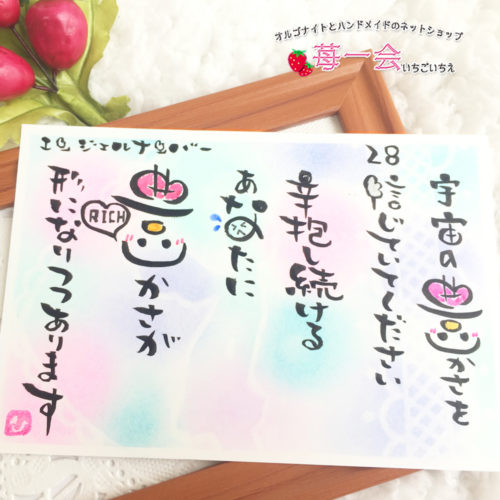 オルゴナイトとハンドメイドのネットショップ
苺一会いちごいちえ
エンジェルナンバー
28
宇宙の豊かさを
信じていてください
辛抱し続ける
あなたに
豊かさが
RICH
形になりつつあります